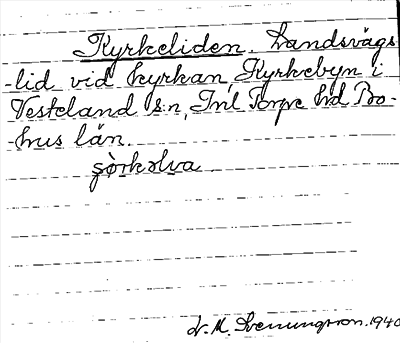 Kyrkeliden. Landsvägs
-lid vid kyrkan, Kyrkebyn i
Vesteland s:n, Inl Torpe hd Bo-
-hus län.
N. M. Svenungsson. 1940